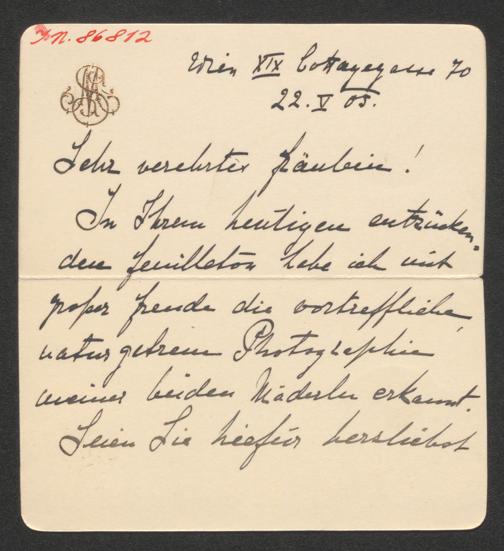 I.N. 86812
Wien XIX Cottagegasse 70
22. V 05.
Sehr verehrtes Fräulein!
In Ihrem heutigen entzücken-
den Feuilleton habe ich mit
großer Freude die vortreffliche,
naturgetreue Photographie
meiner beiden Mäderln erkannt.
Seien Sie hiefür herzliebst